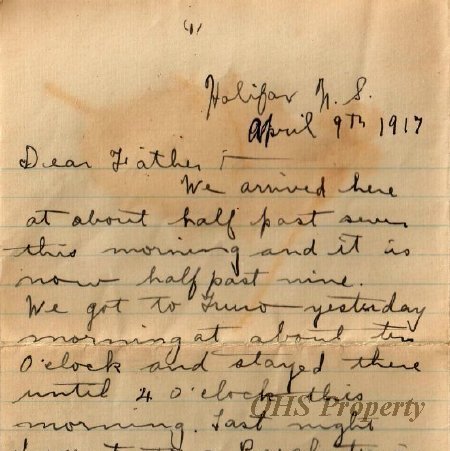 (1)
Halifax N. S.
April 9th 1917
Dear Father :-
We arrived here
at about half past seven
this morning and it is
now half past nine.
We got to Truro yesterday
morning at about ten
O'clock and stayed there
until 4 O'clock this
morning. Last night
QHS Property